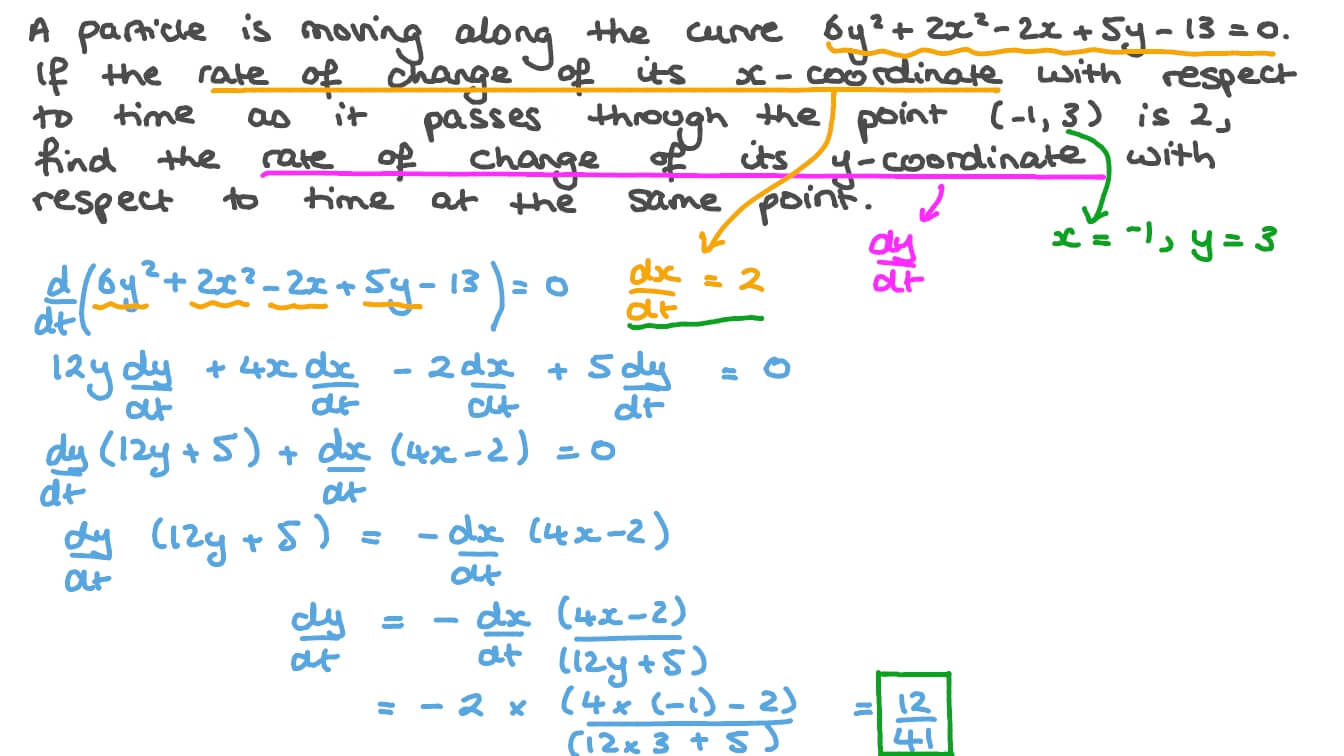 A particle is moving along the curve 6y² + 2x² - 2x + 5y - 13 = 0.
If the rate of change of its x-coordinate with respect
to time as it passes through the point (-1, 3) is 2,
find the rate of change of its y-coordinate with
respect to time at the same point.
dy/dt
x = -1, y = 3
d/dt (6y² + 2x² - 2x + 5y - 13) = 0
dx/dt = 2
12y dy/dt + 4x dx/dt - 2 dx/dt + 5 dy/dt = 0
dy/dt (12y + 5) + dx/dt (4x - 2) = 0
dy/dt (12y + 5) = - dx/dt (4x - 2)
dy/dt = - dx/dt (4x - 2)/(12y + 5)
= - 2 × (4 × (-1) - 2)/(12 × 3 + 5) = 12/41